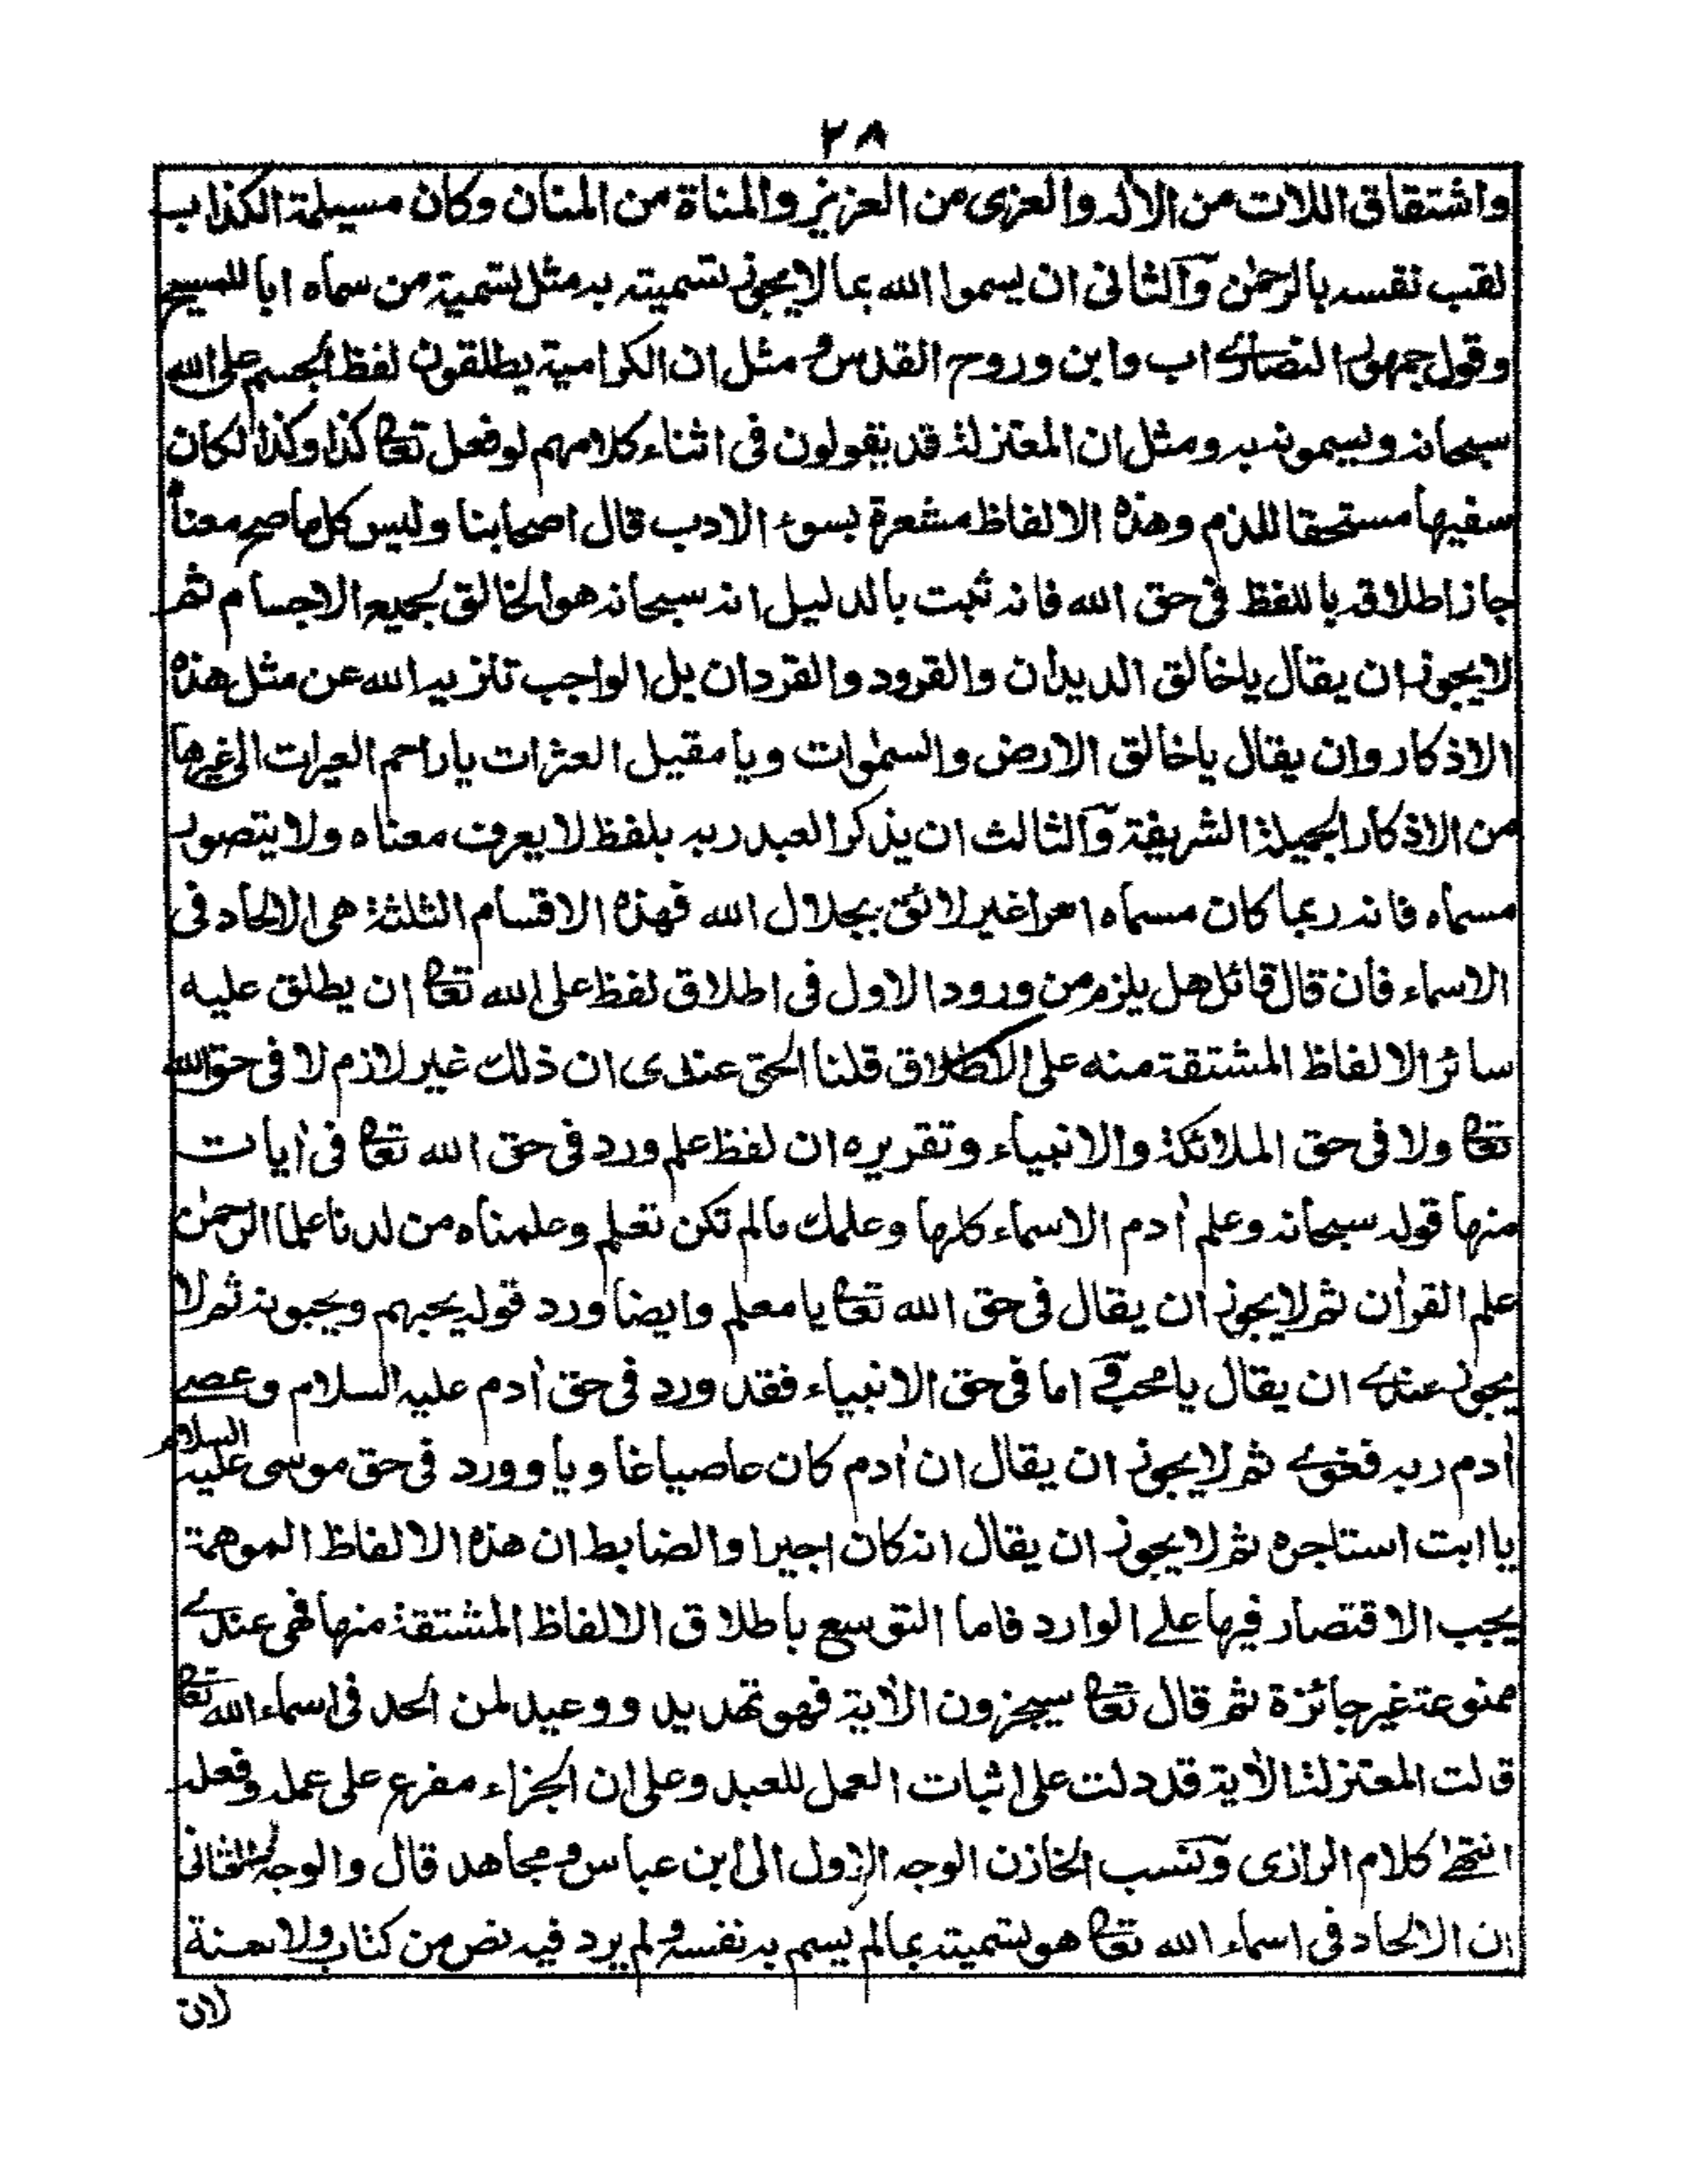 ٢٨
واشتقاق اللات من الاله والعزى من العزيز والمناة من المنان وكان مسيلمة الكذاب
لقب نفسه بالرحمٰن والثانى ان يسموا الله بما لا يجوز تسميته به مثل تسمية من سماه ابا للمسيح
وقول جمهور النصارى اب وابن وروح القدس ومثل ان الكرامية يطلقون لفظ الجسم على الله
سبحانه ويسمونه به ومثل ان المعتزلة قد يقولون فى اثناء كلامهم لو فعل تعالى كذا وكذا لكان
سفيها مستحقا للذم وهذه الالفاظ مشعرة بسوء الادب قال اصحابنا وليس كل ما صح معناه
جاز اطلاقه باللفظ فى حق الله فانه ثبت بالدليل انه سبحانه هو الخالق لجميع الاجسام ثم
لا يجوز ان يقال يا خالق الديدان والقرود والقردان بل الواجب تنزيه الله عن مثل هذه
الاذكار وان يقال يا خالق الارض والسمٰوات ويا مقيل العثرات يا راحم العبرات الى غيرها
من الاذكار الجميلة الشريفة والثالث ان يذكر العبد ربه بلفظ لا يعرف معناه ولا يتصور
مسماه فانه ربما كان مسماه امرا غير لائق بجلال الله فهذه الاقسام الثلثة هى الالحاد فى
الاسماء فان قال قائل هل يلزم من ورود الاول فى اطلاق لفظ على الله تعالى ان يطلق عليه
سائر الالفاظ المشتقة منه على الاطلاق قلنا الحق عندى ان ذلك غير لازم لا فى حق الله
تعالى ولا فى حق الملائكة والانبياء وتقريره ان لفظ علم ورد فى حق الله تعالى فى اٰيات
منها قوله سبحانه وعلم اٰدم الاسماء كلها وعلمك مالم تكن تعلم وعلمناه من لدنا علما الرحمٰن
علم القراٰن ثم لا يجوز ان يقال فى حق الله تعالى يا معلم وايضا ورد قوله يحبهم ويحبونه ثم لا
يجوز عندى ان يقال يا محب واما فى حق الانبياء فقد ورد فى حق اٰدم عليه السلام وعصى
اٰدم ربه فغوى ثم لا يجوز ان يقال ان اٰدم كان عاصيا غاويا وورد فى حق موسى عليه السلام
يا ابت استاجره ثم لا يجوز ان يقال انه كان اجيرا والضابط ان هذه الالفاظ الموهمة
يجب الاقتصار فيها على الوارد فاما التوسع باطلاق الالفاظ المشتقة منها فهى عندى
ممنوعة غير جائزة ثم قال تعالى سيجزون الاٰية فهو تهديد ووعيد لمن الحد فى اسماء الله تعالى
قالت المعتزلة الاٰية قد دلت على اثبات العمل للعبد وعلى ان الجزاء مفرع على عمله وفعله
انتهى كلام الرازى ونسب الخازن الوجه الاول الى ابن عباس ومجاهد قال والوجه الثانى
ان الالحاد فى اسماء الله تعالى هو تسميته بما لم يسم به نفسه ولم يرد فيه نص من كتاب ولا سنة
لان